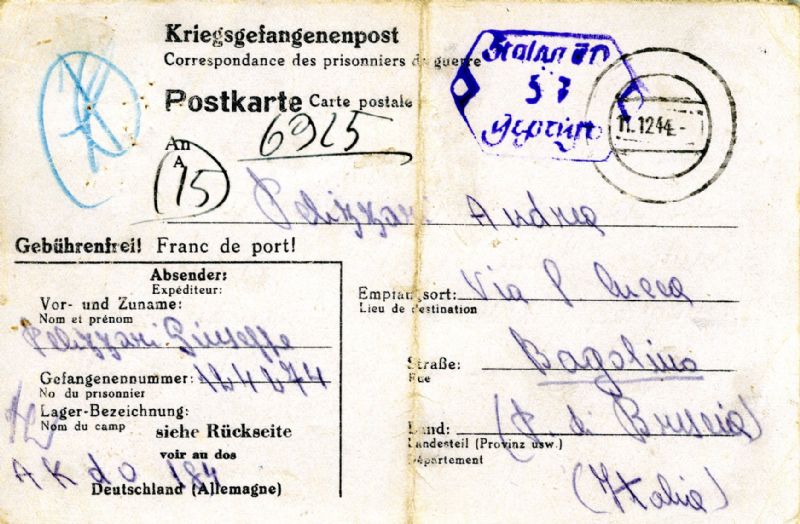 Kriegsgefangenenpost
Correspondance des prisonniers de guerre
Postkarte Carte postale
Stalag
57
Geprüft
11.12.44.-
An
A
6925
15
Pelizzari Andrea
Gebührenfrei! Franc de port!
Absender:
Expéditeur:
Vor- und Zuname:
Nom et prénom
Pelizzari Giuseppe
Gefangenennummer:
No du prisonnier
Lager-Bezeichnung:
Nom du camp
siehe Rückseite
voir au dos
AKdo 184
Deutschland (Allemagne)
Empfangsort: Via
Lieu de destination
Straße: Bagolino
Rue
Land: (P. di Brescia)
Landesteil (Provinz usw.)
Département
(Italia)